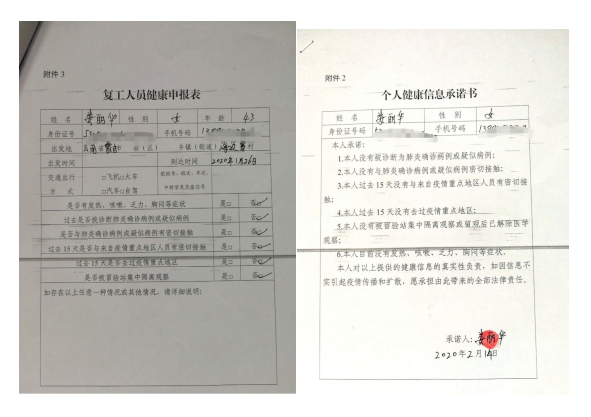 附件 3
复工人员健康申报表
姓 名 娄丽华 性 别 女 年 龄 43
身份证号 手机号码
出发地 县（区） 乡镇（街道） 村
出发时间 到达时间 2020年1月26日
交通出行 □飞机□火车
方 式 □汽车□自驾
是否有发热、咳嗽、乏力、胸闷等症状 是□ 否
过去是否被诊断肺炎确诊病例或疑似病例 是□ 否
是否与肺炎确诊病例或疑似病例有密切接触 是□ 否
过去 15 天是否与来自疫情重点地区人员有密切接触 是□ 否
过去 15 天是否去过疫情重点地区 是□ 否
是否被留验站集中隔离观察 是□ 否
如存在以上任意一种情况或其他情况，请详细说明：
附件 2
个人健康信息承诺书
姓 名 娄丽华 性 别 女
身份证号 手机号码
本人承诺：
1.本人没有被诊断为肺炎确诊病例或疑似病例；
2.本人没有与肺炎确诊病例或疑似病例有密切接触；
3.本人过去 15 天没有与来自疫情重点地区人员有密切接
触；
4.本人过去 15 天没有去过疫情重点地区；
5.本人没有被留验站集中隔离观察或留观后已解除医学
观察；
6.本人目前没有发热、咳嗽、乏力、胸闷等症状。
本人对以上提供的健康信息的真实性负责，如因信息不
实引起疫情传播和扩散，愿承担由此带来的全部法律责任。
承诺人：娄丽华
2020年2月14日